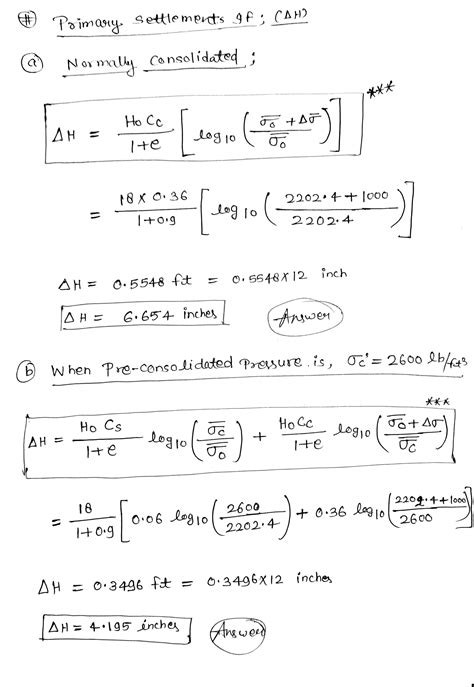 # Primary settlements if; (ΔH)
(a) Normally consolidated;
ΔH = HoCc / 1+e [ log10 ( σo + Δσ / σo ) ] ***
= 18 × 0.36 / 1+0.9 [ log10 ( 2202.4 + 1000 / 2202.4 ) ]
ΔH = 0.5548 ft = 0.5548×12 inch
ΔH = 6.654 inches Answer
(b) When Pre-consolidated Pressure is, σc' = 2600 lb/ft3
***
ΔH = Ho Cs / 1+e log10 ( σc / σo ) + HoCc / 1+e log10 ( σo + Δσ / σc )
= 18 / 1+0.9 [ 0.06 log10 ( 2600 / 2202.4 ) + 0.36 log10 ( 2202.4+1000 / 2600 ) ]
ΔH = 0.3496 ft = 0.3496×12 inches
ΔH = 4.195 inches Answer